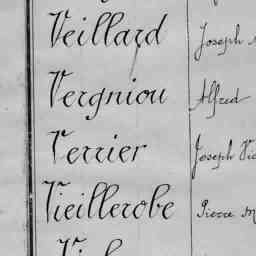 Veillard Joseph
Vergniou Alfred
Verrier Joseph Vic
Vieillerobe Pierre M